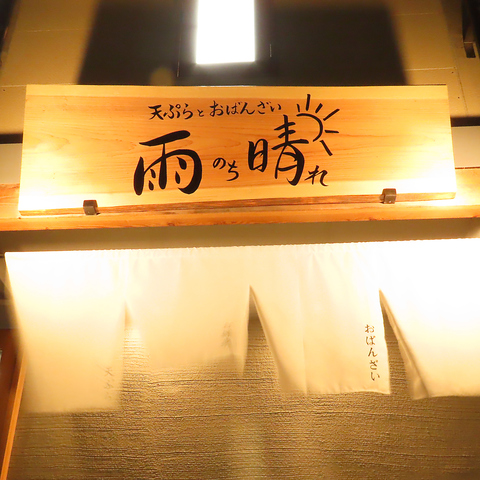 天ぷらとおばんざい
雨のち晴れ
おばんざい